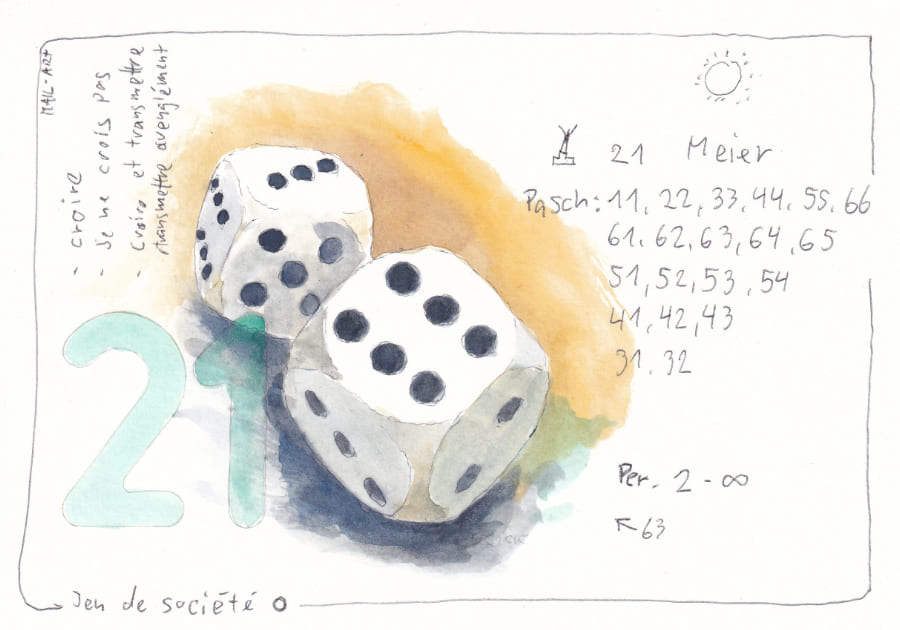 MAIL-ART
- croire
- Je ne crois pas
- Croire et transmettre
transmettre aveuglément
21 Meier
Pasch: 11, 22, 33, 44, 55, 66
61, 62, 63, 64, 65
51, 52, 53, 54
41, 42, 43
31, 32
21
Per. 2 - ∞
↖ 63
Jeu de société